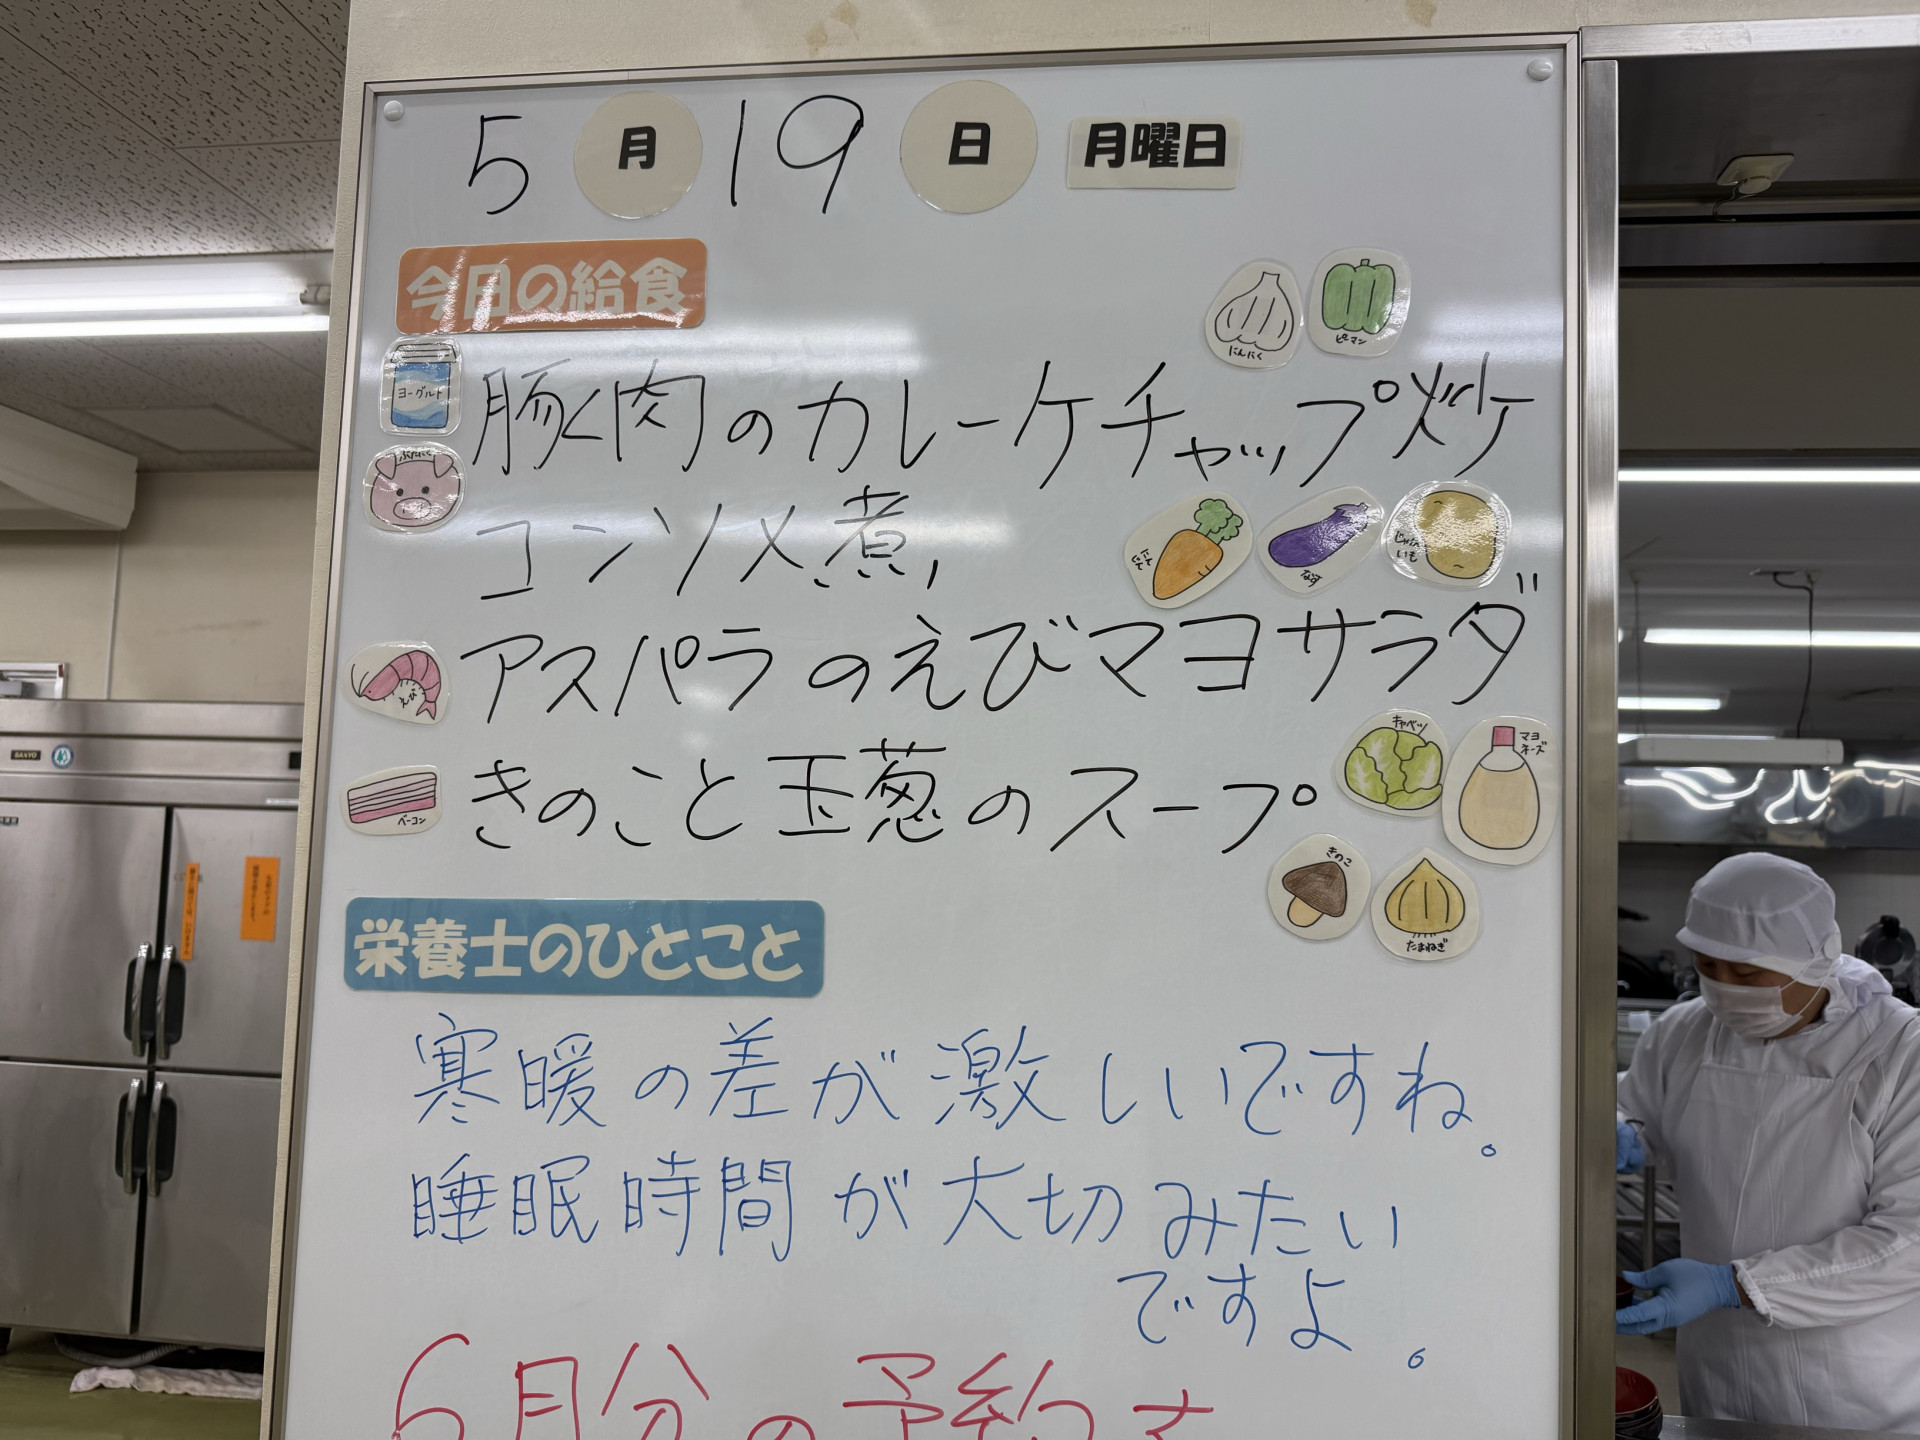 5月19日 月曜日
今日の給食
にんにく
ピーマン
ヨーグルト
豚肉のカレーケチャップ炒ケ
ぶたにく
コンソメ煮,
にんじん
なす
じゃがいも
アスパラのえびマヨサラダ
えび
きのこと玉葱のスープ
ベーコン
キャベツ
マヨネーズ
きのこ
たまねぎ
栄養士のひとこと
寒暖の差が激しいですね。
睡眠時間が大切みたい
ですよ。
6月分の予約
SANYO